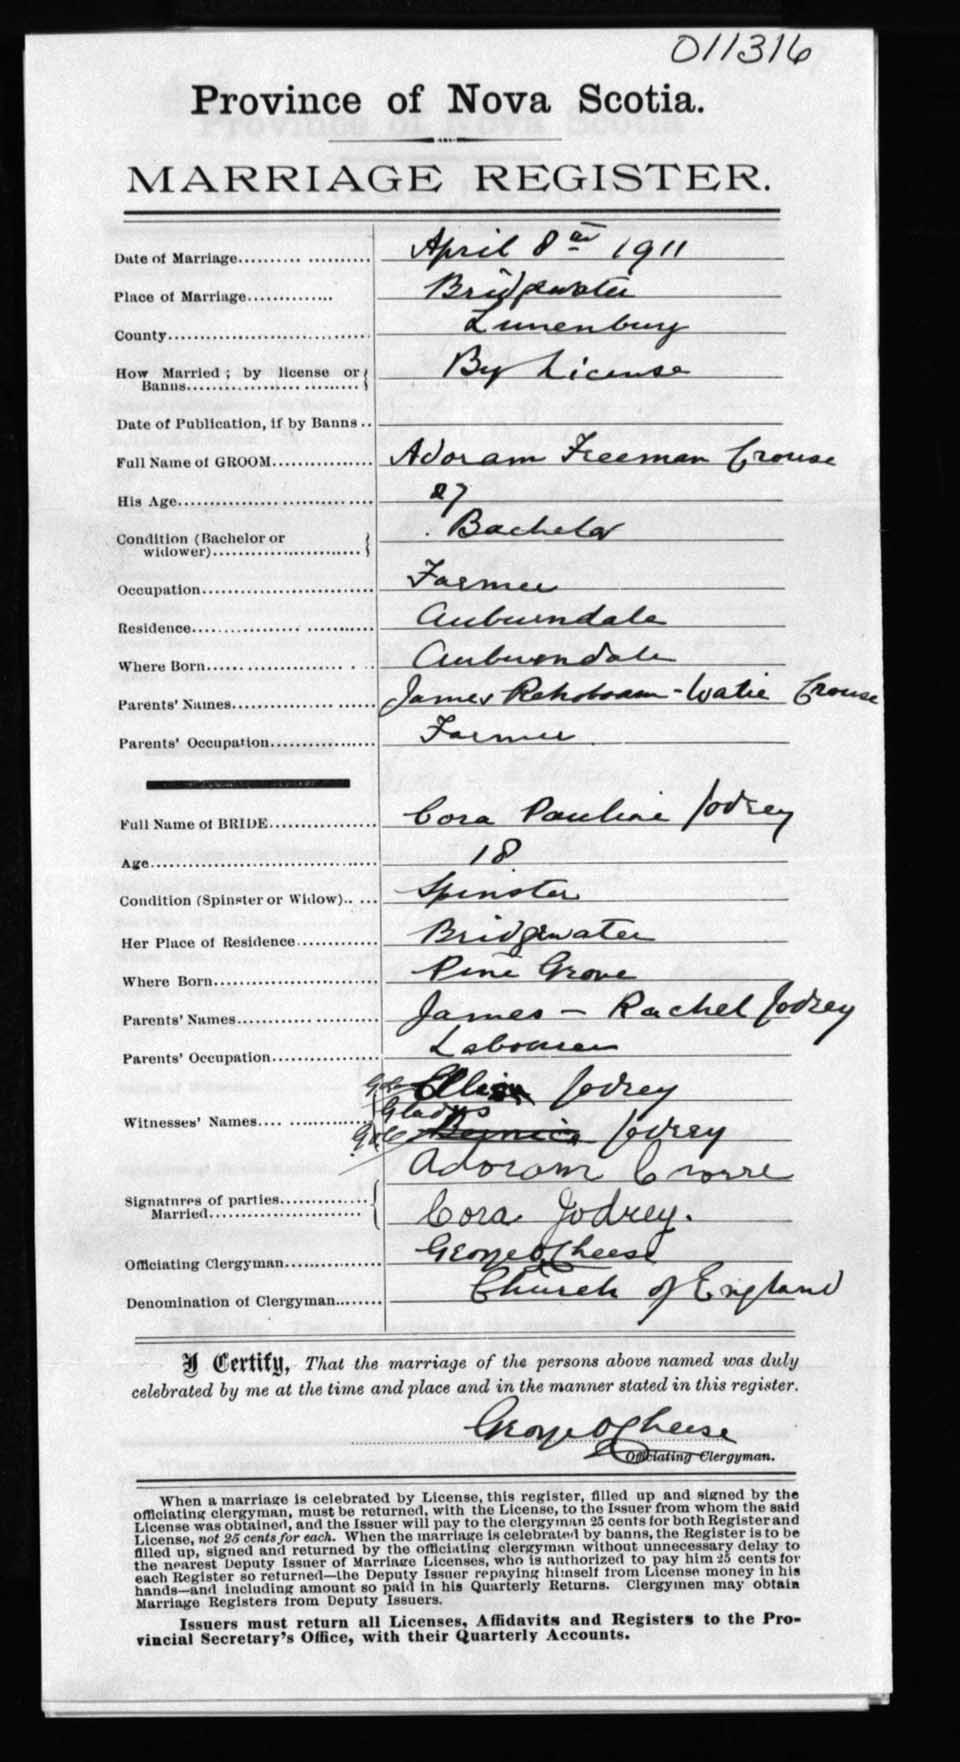 011316
Province of Nova Scotia.
MARRIAGE REGISTER.
Date of Marriage.......... .......... April 8th 1911
Place of Marriage............. Bridgewater
County............................... Lunenburg
How Married ; by license or Banns.................. ......... By License
Date of Publication, if by Banns ..
Full Name of GROOM............... Adoram Freeman Crouse
His Age........................ ........ 27
Condition (Bachelor or widower)........................... Bachelor
Occupation........................... Farmer
Residence................. .......... Auburndale
Where Born................. . . . Auburndale
Parents' Names................ ...... James Rehoboam - Watie Crouse
Parents' Occupation................. Farmer
Full Name of BRIDE................ Cora Pauline Jodrey
Age.................................... 18
Condition (Spinster or Widow).. ... Spinster
Her Place of Residence............. Bridgewater
Where Born......................... Pine Grove
Parents' Names............ .......... James - Rachel Jodrey
Parents' Occupation................. Labourer
Jodrey
Gladys
Witnesses' Names.... ............. Bernice Jodrey
Adoram Crouse
Signatures of parties Married.............. Cora Jodrey.
Officiating Clergyman............... George D Cheese
Denomination of Clergyman........ Church of England
I Certify, That the marriage of the persons above named was duly
celebrated by me at the time and place and in the manner stated in this register.
George D Cheese
Officiating Clergyman.
When a marriage is celebrated by License, this register, filled up and signed by the
officiating clergyman, must be returned, with the License, to the Issuer from whom the said
License was obtained, and the Issuer will pay to the clergyman 25 cents for both Register and
License, not 25 cents for each. When the marriage is celebrated by banns, the Register is to be
filled up, signed and returned by the officiating clergyman without unnecessary delay to
the nearest Deputy Issuer of Marriage Licenses, who is authorized to pay him 25 cents for
each Register so returned—the Deputy Issuer repaying himself from License money in his
hands—and including amount so paid in his Quarterly Returns. Clergymen may obtain
Marriage Registers from Deputy Issuers.
Issuers must return all Licenses, Affidavits and Registers to the Pro-
vincial Secretary's Office, with their Quarterly Accounts.